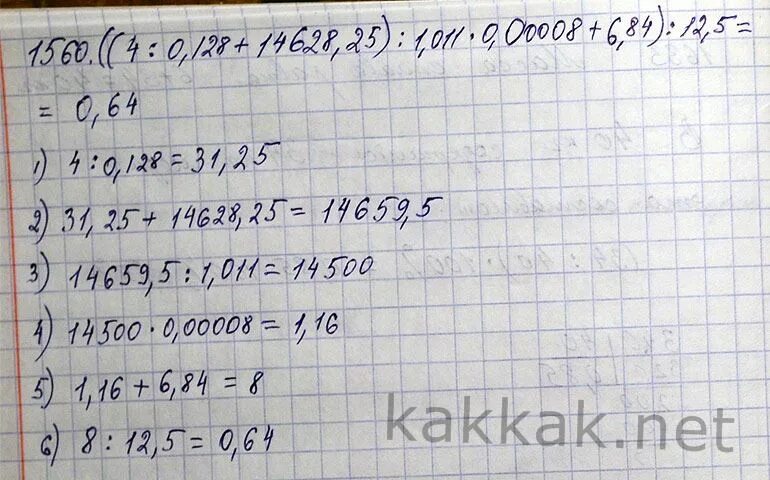 1560. ((4 : 0,128 + 14628,25) : 1,011 · 0,00008 + 6,84) : 12,5 =
= 0,64
1) 4 : 0,128 = 31,25
2) 31,25 + 14628,25 = 14659,5
3) 14659,5 : 1,011 = 14500
4) 14500 · 0,00008 = 1,16
5) 1,16 + 6,84 = 8
6) 8 : 12,5 = 0,64
kakkak.net